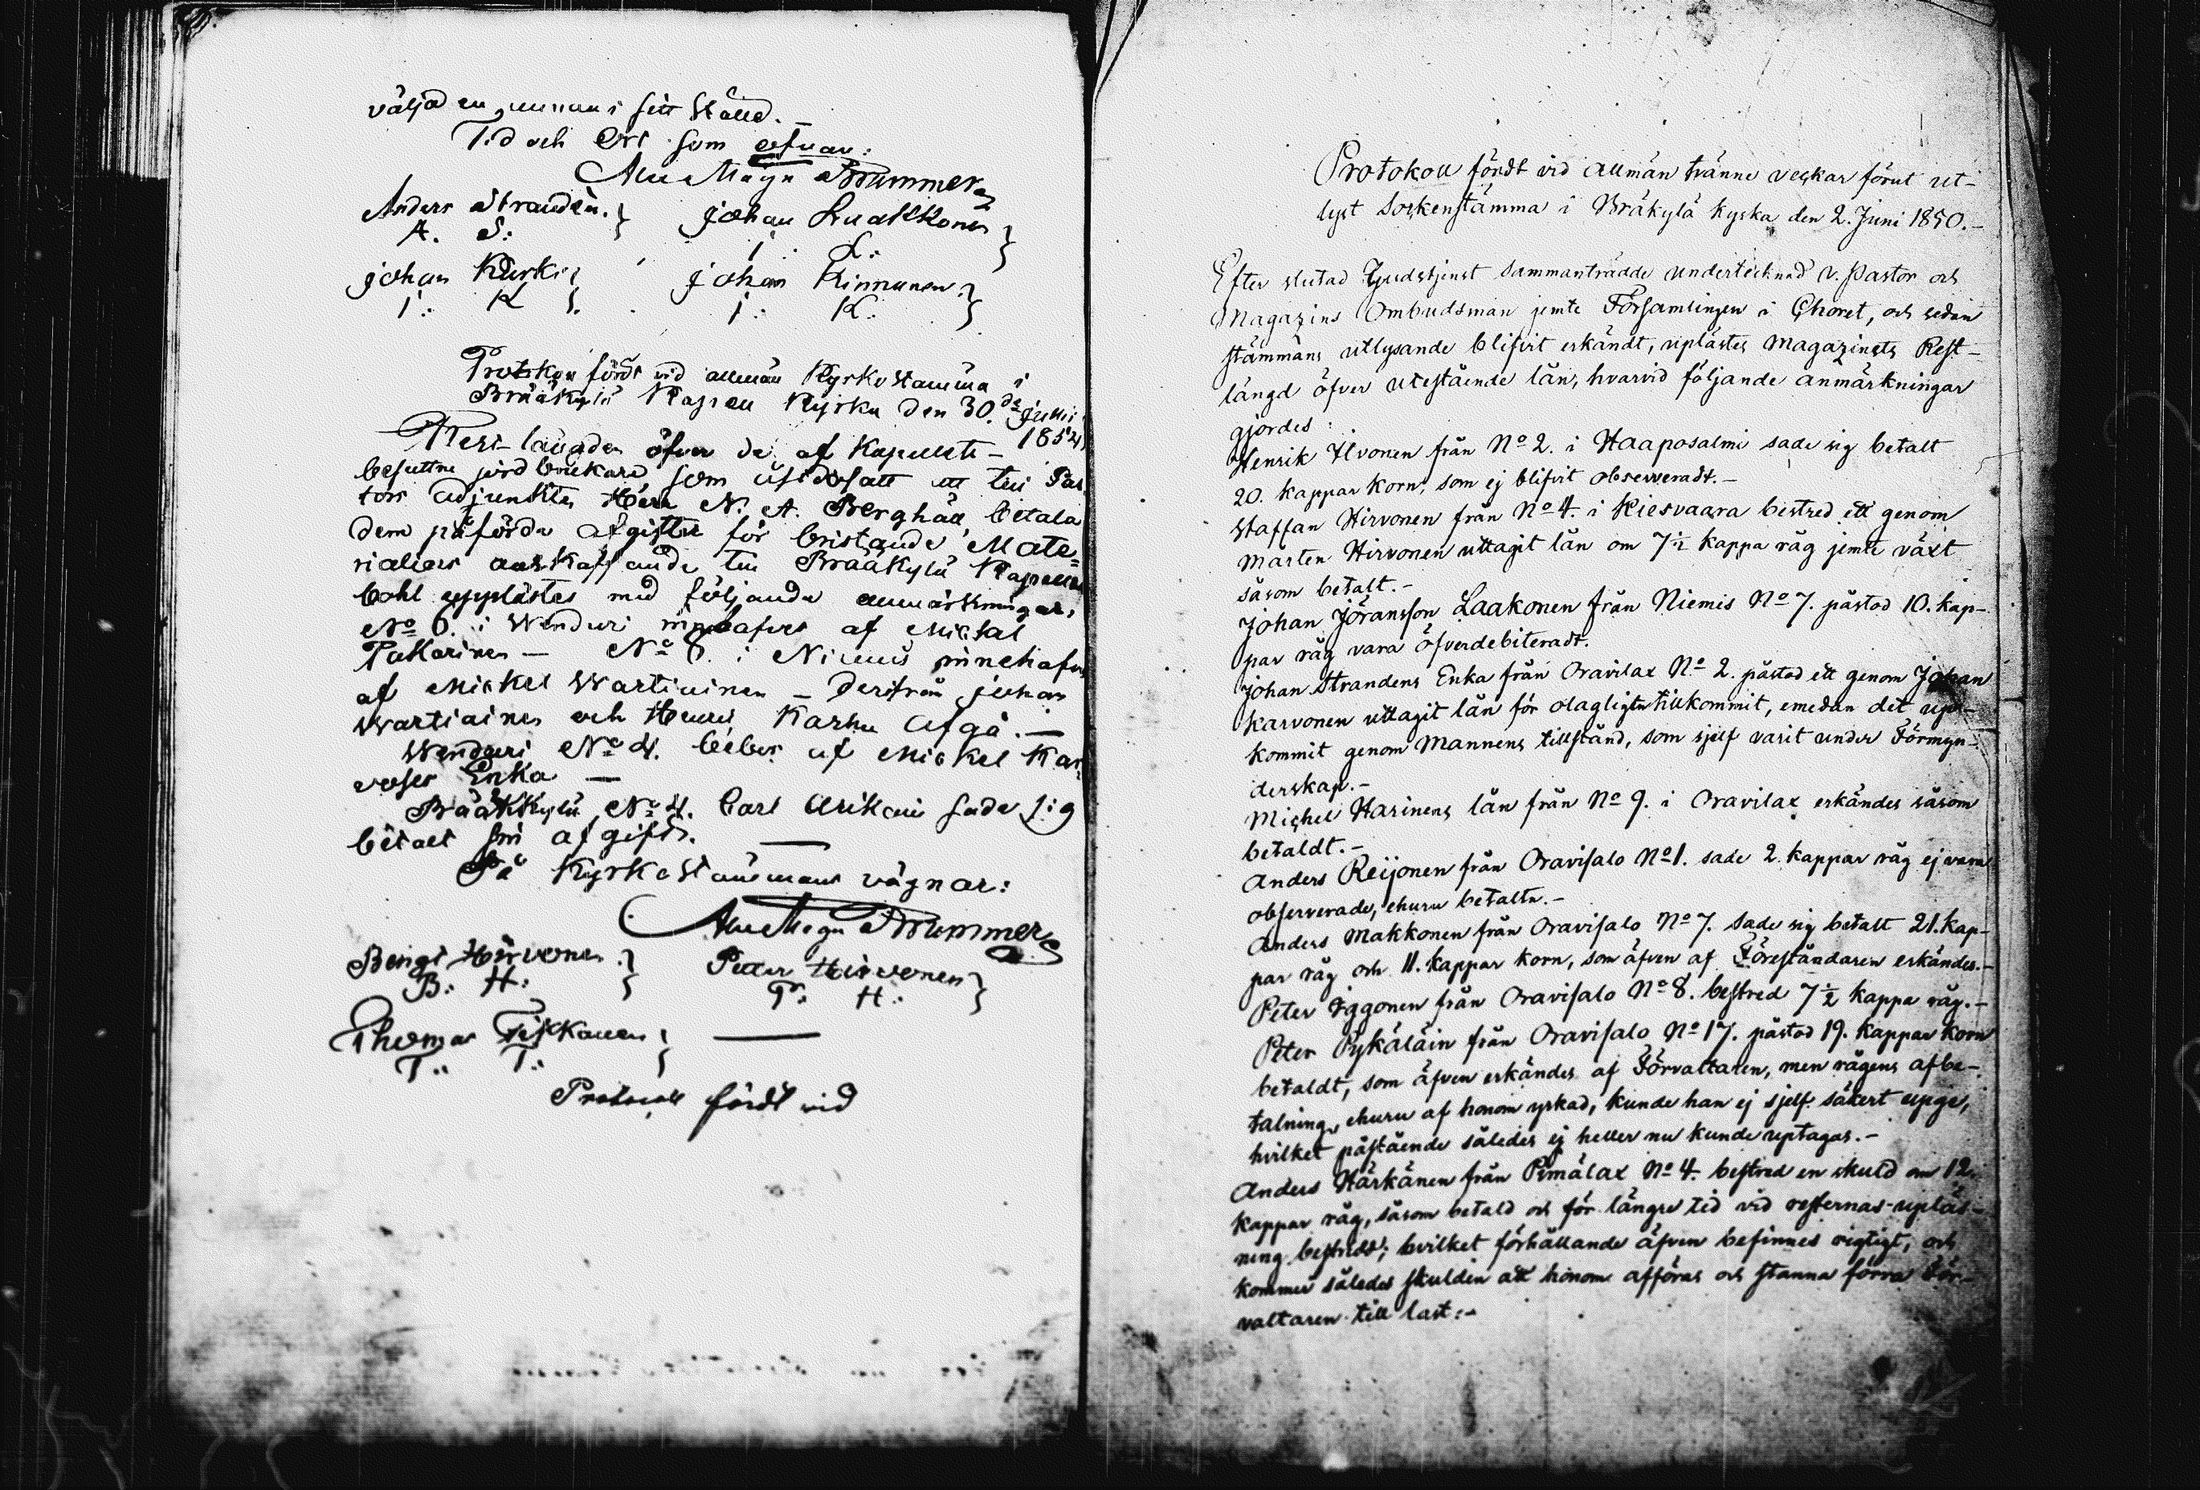 väljad en annan i sitt ställe. –
Tid och Ort som ofvan:
Alex Magn Brummer
Anders Strandén. } Johan Luukkonen }
A. S: I: L:
Johan Kurki } Johan Kinnunen }
I: K I: K:
Protokoll fördt vid allmän Kyrkostämma i
Brääkylä Kapell Kyrka den 30.de Junii
1854
Rest-längden öfver de af Kapellets
besuttne jordbrukare som til Pas
tors Adjunkten Herr N. A. Berghäll, betala
dem påförde afgifter för bristande Mate-
rialiers anskaffande till Brääkylä Kapells
bohl upplästes med följande anmärkningar,
No 6. i Wänduri innehafves af Michel
Pakarinen – No 8. i Niemis innehafves
af Mickel Wartiainen – Derifrån Johan
Wartiainen och Henric Karhu Afgå. –
Wänduri No 4. bebos af Mickel Kar
voses Enka –
Brääkkylä No 4. Carl Arikain sade sig
betalt sin afgift.
På Kyrkostämmans vägnar:
Alex Magn Brummer
Bengt Hirvonen } Petter Hirvonen }
B: H: P: H:
Thomas Tiikkanen }
T: T:
Protocoll fördt vid
Protokoll fördt vid allmän tvänne veckar förut ut-
lyst Sockenstämma i Bräkylä kyrka den 2. Juni 1850. –
Efter slutad Gudstjenst sammanträdde undertecknad v. Pastor och
Magazins Ombudsman jemte Församlingen i Choret, och sedan
stämmans utlysande blifvit erkändt, uplästes Magazinets Rest-
längd öfver utestående lån, hvarvid följande anmärkningar
gjordes:
Henrik Ilvonen från No 2. i Haaposalmi sade sig betalt
20. kappar korn, som ej blifvit observeradt. –
Staffan Hirvonen från No 4. i Kiesvaara bestred ett genom
Mårten Hirvonen uttagit lån om 7½ kappa råg jemte växt
såsom betalt. –
Johan Jöransson Laakonen från Niemis No 7. påstod 10. kap-
par råg vara öfverdebiteradt.
Johan Strandens Enka från Oravilax No 2. påstod ett genom Johan
Karvonen uttagit lån för olagligen tillkommit, emedan det up-
kommit genom Mannens tillstånd, som sjelf varit under Förmyn-
derskap. –
Michel Harinens lån från No 9. i Oravilax erkändes såsom
betaldt. –
Anders Reijonen från Oravisalo No 1. sade 2. kappar råg ej vara
observerade, ehuru betalta. –
Anders Makkonen från Oravisalo No 7. sade sig betalt 21. kap-
par råg och 11. kappar korn, som äfven af Föreståndaren erkändes. –
Peter Iggonen från Oravisalo No 8. bestred 7½ kappa råg. –
Peter Pykäläin från Oravisalo No 17. påstod 19. kappar korn
betaldt, som äfven erkändes af Förvaltaren, men rågens afbe-
talning, ehuru af honom yrkad, kunde han ej sjelf säkert upge,
hvilket påstående således ej heller nu kunde uptagas. –
Anders Härkänen från Pimälax No 4. bestred en skuld om 12.
kappar råg, såsom betald och för längre tid vid resternas upläs-
ning bestridd; hvilket förhållande äfven befinnes rigtigt, och
kommer således skulden att honom afföras och stanna förra För-
valtaren till last: –